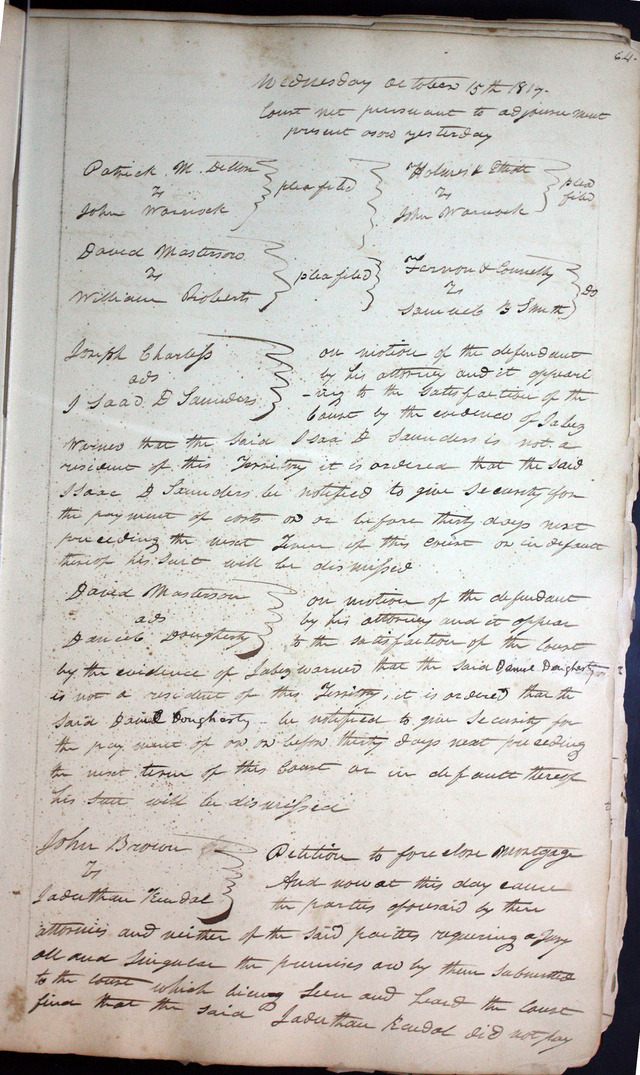 64.
Wednesday October 15th 1817.
Court met pursuant to adjournment
present as on yesterday
Patrick M. Dillon
vs
John Warnock
plea filed
Holmes & Elliott
vs
John Warnock
plea
filed
David Masterson
vs
William Roberts
plea filed
Vernon & Connelly
vs
Samuel B Smith
Do
Joseph Charless
ads
Isaac D Saunders
on motion of the defendant
by his attorney and it appeari
-ng to the satisfaction of the
Court by the evidence of Jabez
Warner that the said Isaa D Saunders is not a
resident of this Territory it is ordered that the said
Isaac D Saunders be notified to give Security for
the payment of costs on or before thirty days next
preceeding the next Term of this court or in default
thereof his suit will be dismissed
David Masterson
ads
Daniel Dougherty
on motion of the defendant
by his attorney and it appear
to the satisfaction of the Court
by the evidence of Jabez warner that the said Daniel Dougherty
is not a resident of this Territory, it is ordered that the
said Daniel Dougherty be notified to give Security for
the payment of on or before thirty days next preceeding
the next term of this Court or in default thereof
his suit will be dismissed
John Brown
vs
Jaduthan Kendal
Petition to foreclose mortgage
And now at this day came
the parties aforesaid by their
attornies and neither of the said parties requiring a Jury
all and Singular the premises are by them submitted
to the court which being seen and heard the Court
find that the said Jaduthan Kendal did not pay